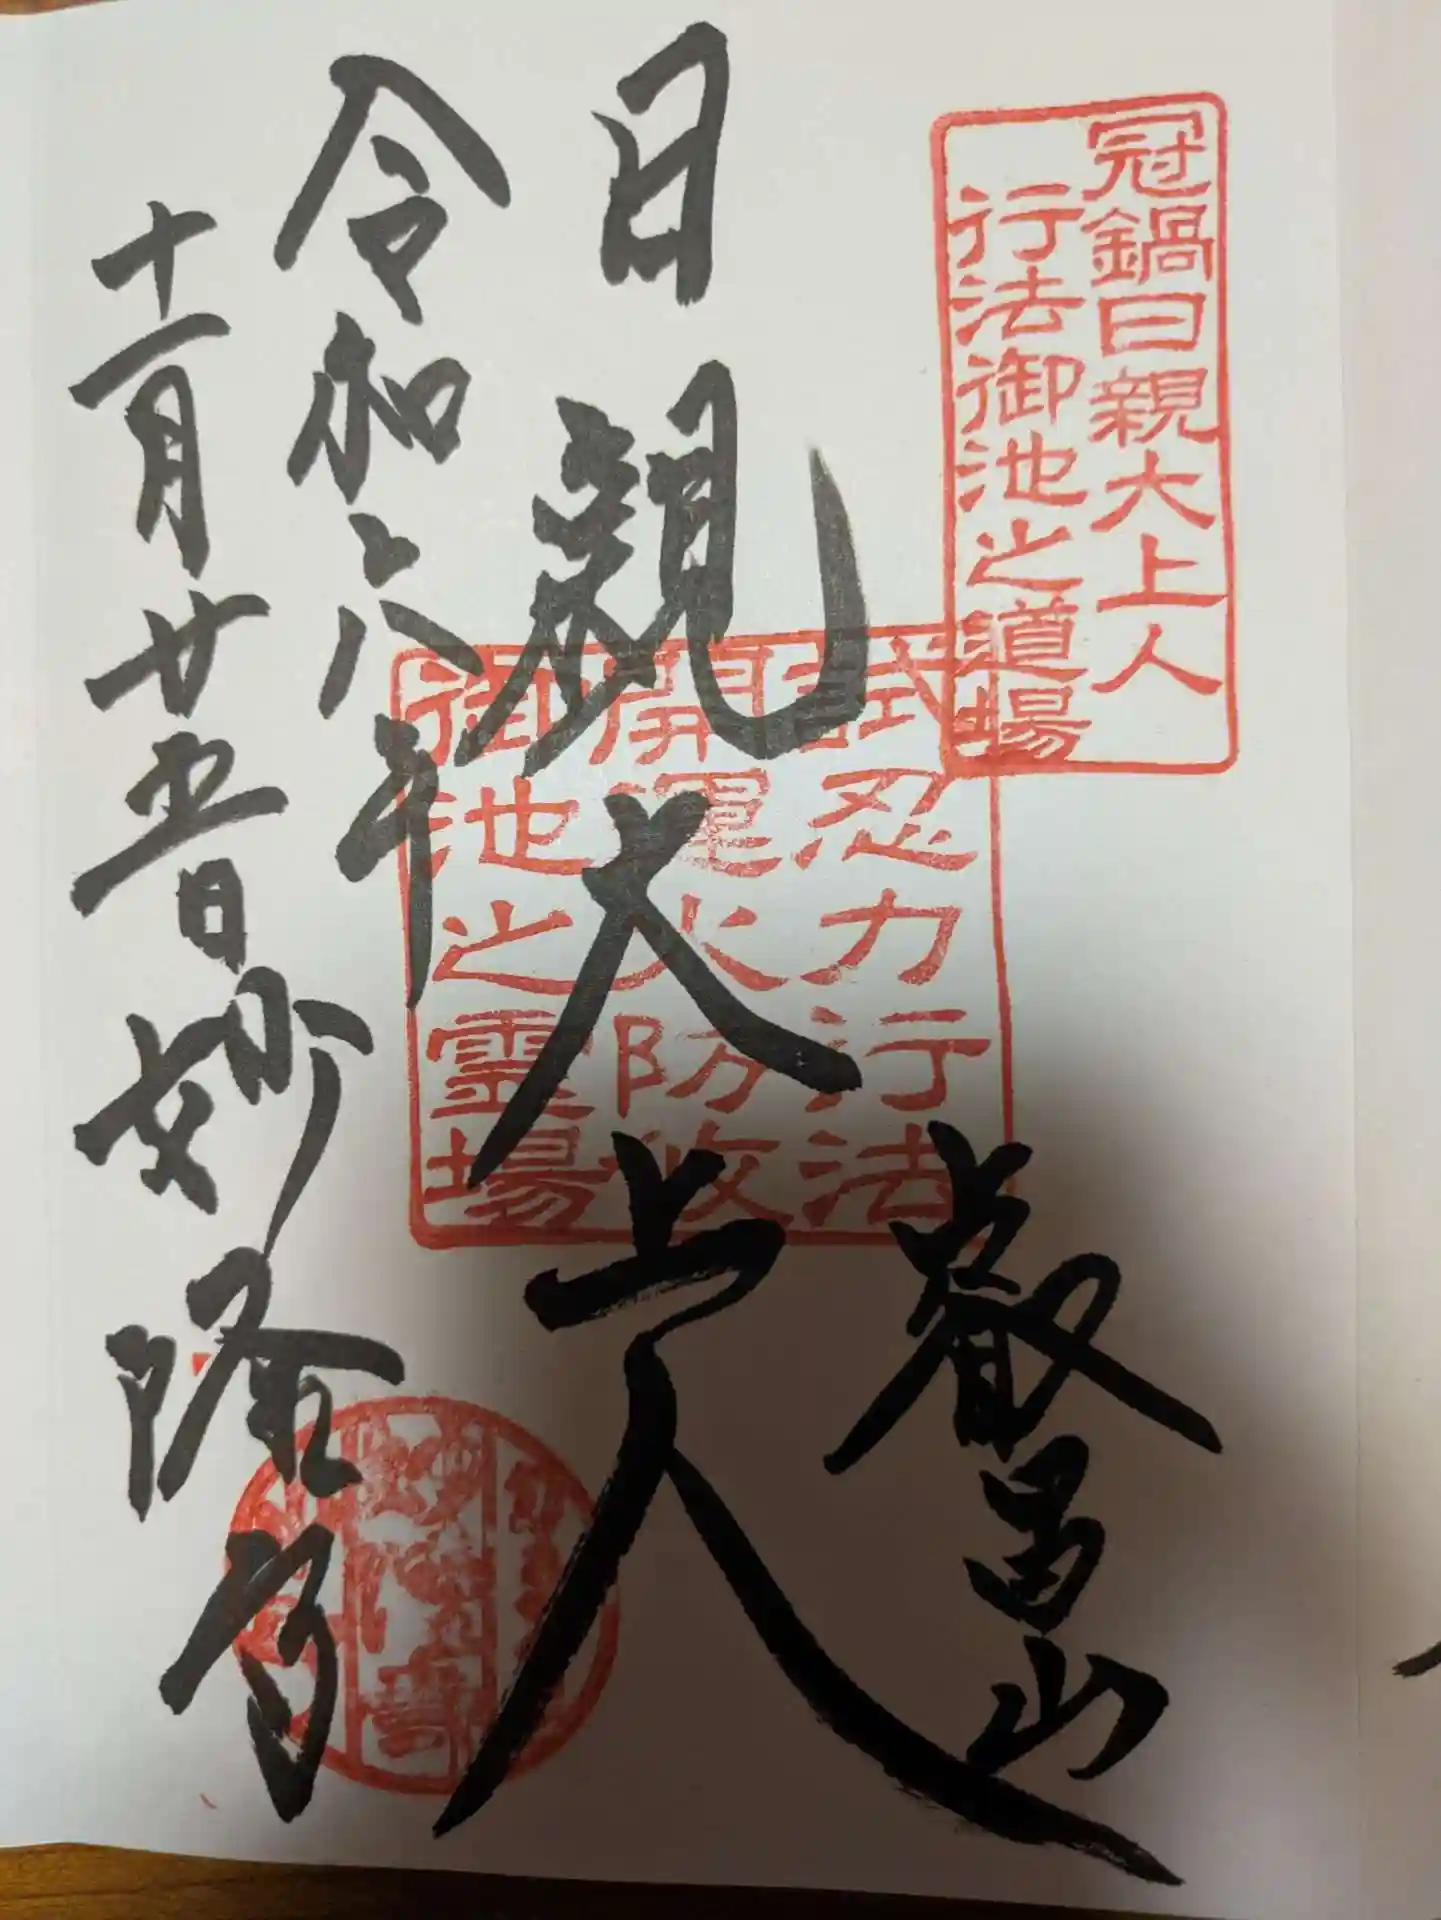 冠鍋日親大上人
行法御池之道場
叡昌山
日親大上人
試忍力行法
開運火防救
御池之霊場
令和六年
十一月廿五日 妙隆寺
妙隆寺